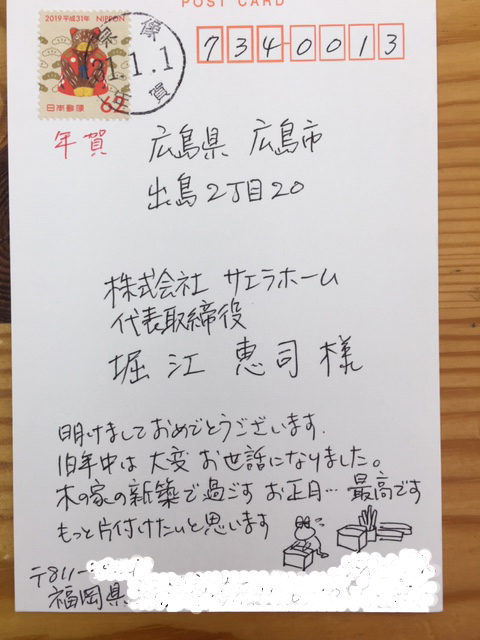 POST CARD
2019平成31年 NIPPON
62
日本郵便
31.1.1
年賀
7340013
年賀
広島県 広島市
出島2丁目20
株式会社 サエラホーム
代表取締役
堀江 恵司 様
明けましておめでとうございます.
旧年中は 大変 お世話になりました。
木の家の新築で過ごす お正月… 最高です
もっと片付けたいと思います
〒811-
福岡県